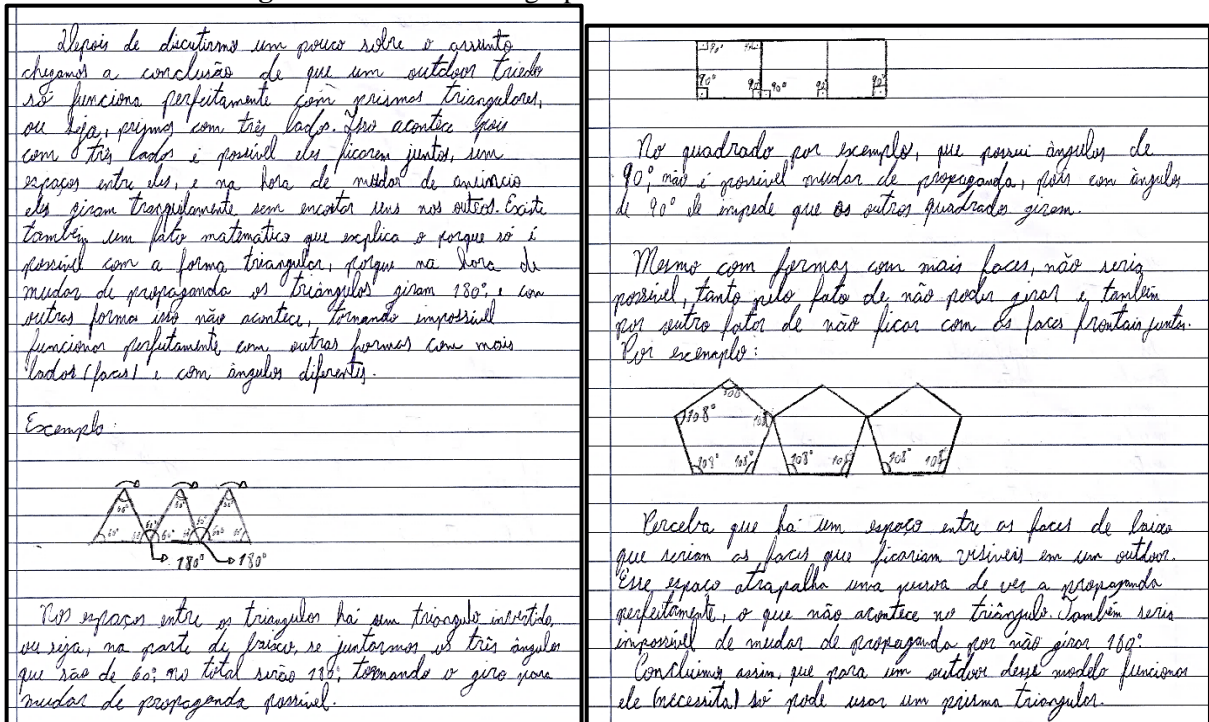 Depois de discutirmos um pouco sobre o assunto
chegamos a conclusão de que um outdoor triedro
só funciona perfeitamente com prismas triangulares,
ou seja, prismas com três lados. Isso acontece pois
com três lados é possível eles ficarem juntos, sem
espaços entre eles, e na hora de mudar de anúncio
eles giram tranquilamente sem encostar uns nos outros. Existe
também um fato matemático que explica o porque só é
possível com a forma triangular, porque na hora de
mudar de propaganda os triângulos giram 180°, e com
outras forma isso não acontece, tornando impossível
funcionar perfeitamente com outras formas com mais
lados (faces) e com ângulos diferentes.
Exemplo:
60° 60° 60°
60° 60° 60° 60° 60° 60° 60° 60°
180° 180°
Nos espaços entre os triangulos há um triangulo invertido,
ou seja, na parte de baixo, se juntarmos os três ângulos
que são de 60°, no total serão 180°, tornando o giro para
mudar de propaganda possível.
90° 90°
90° 90° 90° 90° 90°
No quadrado por exemplo, que possui ângulos de
90°, não é possível mudar de propaganda, pois com ângulos
de 90° ele impede que os outros quadrados girem.
Mesmo com formas com mais faces, não seria
possível, tanto pelo fato de não poder girar e também
por outro fator de não ficar com as faces frontais juntas.
Por exemplo:
108°
108° 108°
108° 108° 108° 108° 108° 108°
Perceba que há um espaço entre as faces de baixo
que seriam as faces que ficariam visíveis em um outdoor.
Esse espaço atrapalha uma pessoa de ver a propaganda
perfeitamente, o que não acontece no triângulo. Também seria
impossível de mudar de propaganda por não girar 180°.
Concluimos assim, que para um outdoor desse modelo funcionar
ele (necessita) só pode usar um prisma triangular.